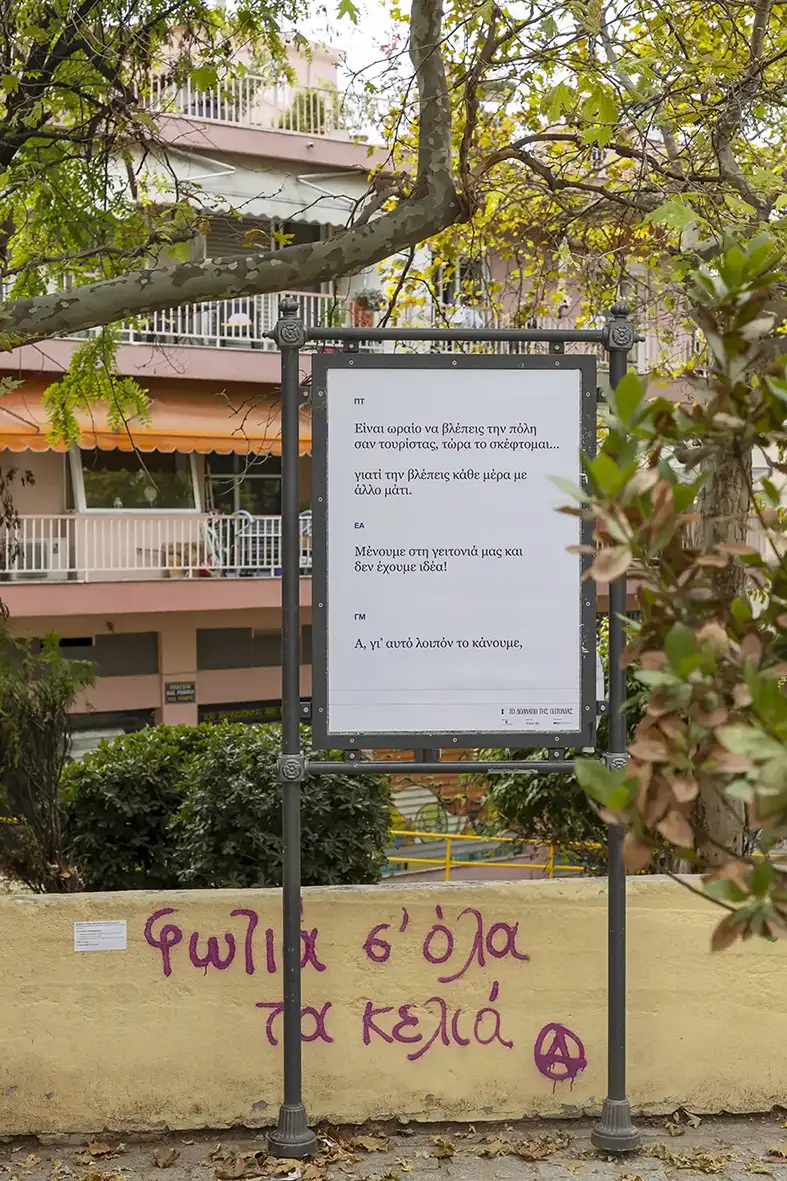 ΠΤ
Είναι ωραίο να βλέπεις την πόλη
σαν τουρίστας, τώρα το σκέφτομαι...
γιατί την βλέπεις κάθε μέρα με
άλλο μάτι.
ΕΑ
Μένουμε στη γειτονιά μας και
δεν έχουμε ιδέα!
ΓΜ
Α, γι’ αυτό λοιπόν το κάνουμε,
ΤΟ ΔΩΜΑΤΙΟ ΤΗΣ ΓΕΙΤΟΝΙΑΣ
φωτιά σ' όλα
τα κελιά